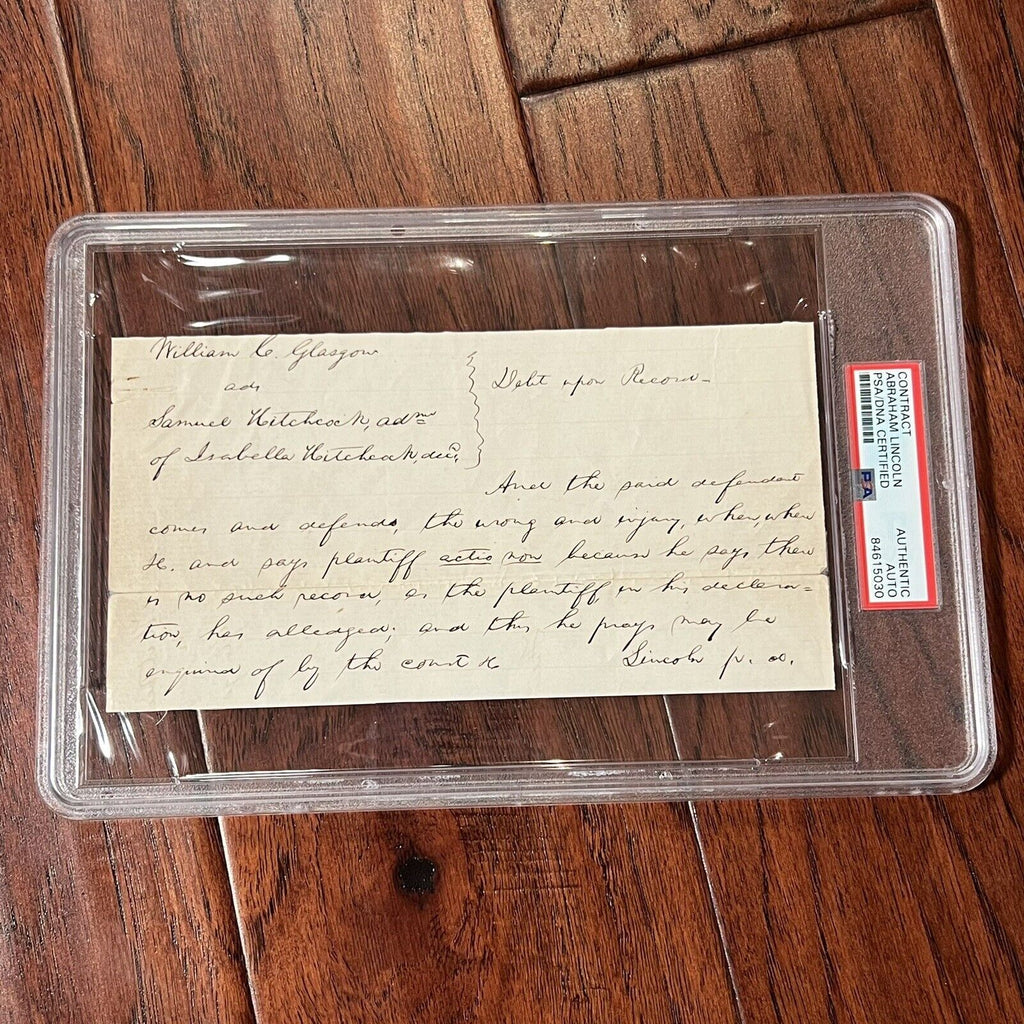 William C. Glasgow
ads
Samuel Hitchcock, admr
of Isabella Hitchcock, decd.
Debt upon Record-
And the said defendant
comes and defends, the wrong and injury, when, where
&c. and says plantiff actio non because he says there
is no such record, as the plantiff in his declara=
tion, has alledged; and this he prays may be
enquired of by the court &c
Lincoln p. d.
CONTRACT
ABRAHAM LINCOLN
PSA/DNA CERTIFIED
PSA
AUTHENTIC
AUTO
84615030